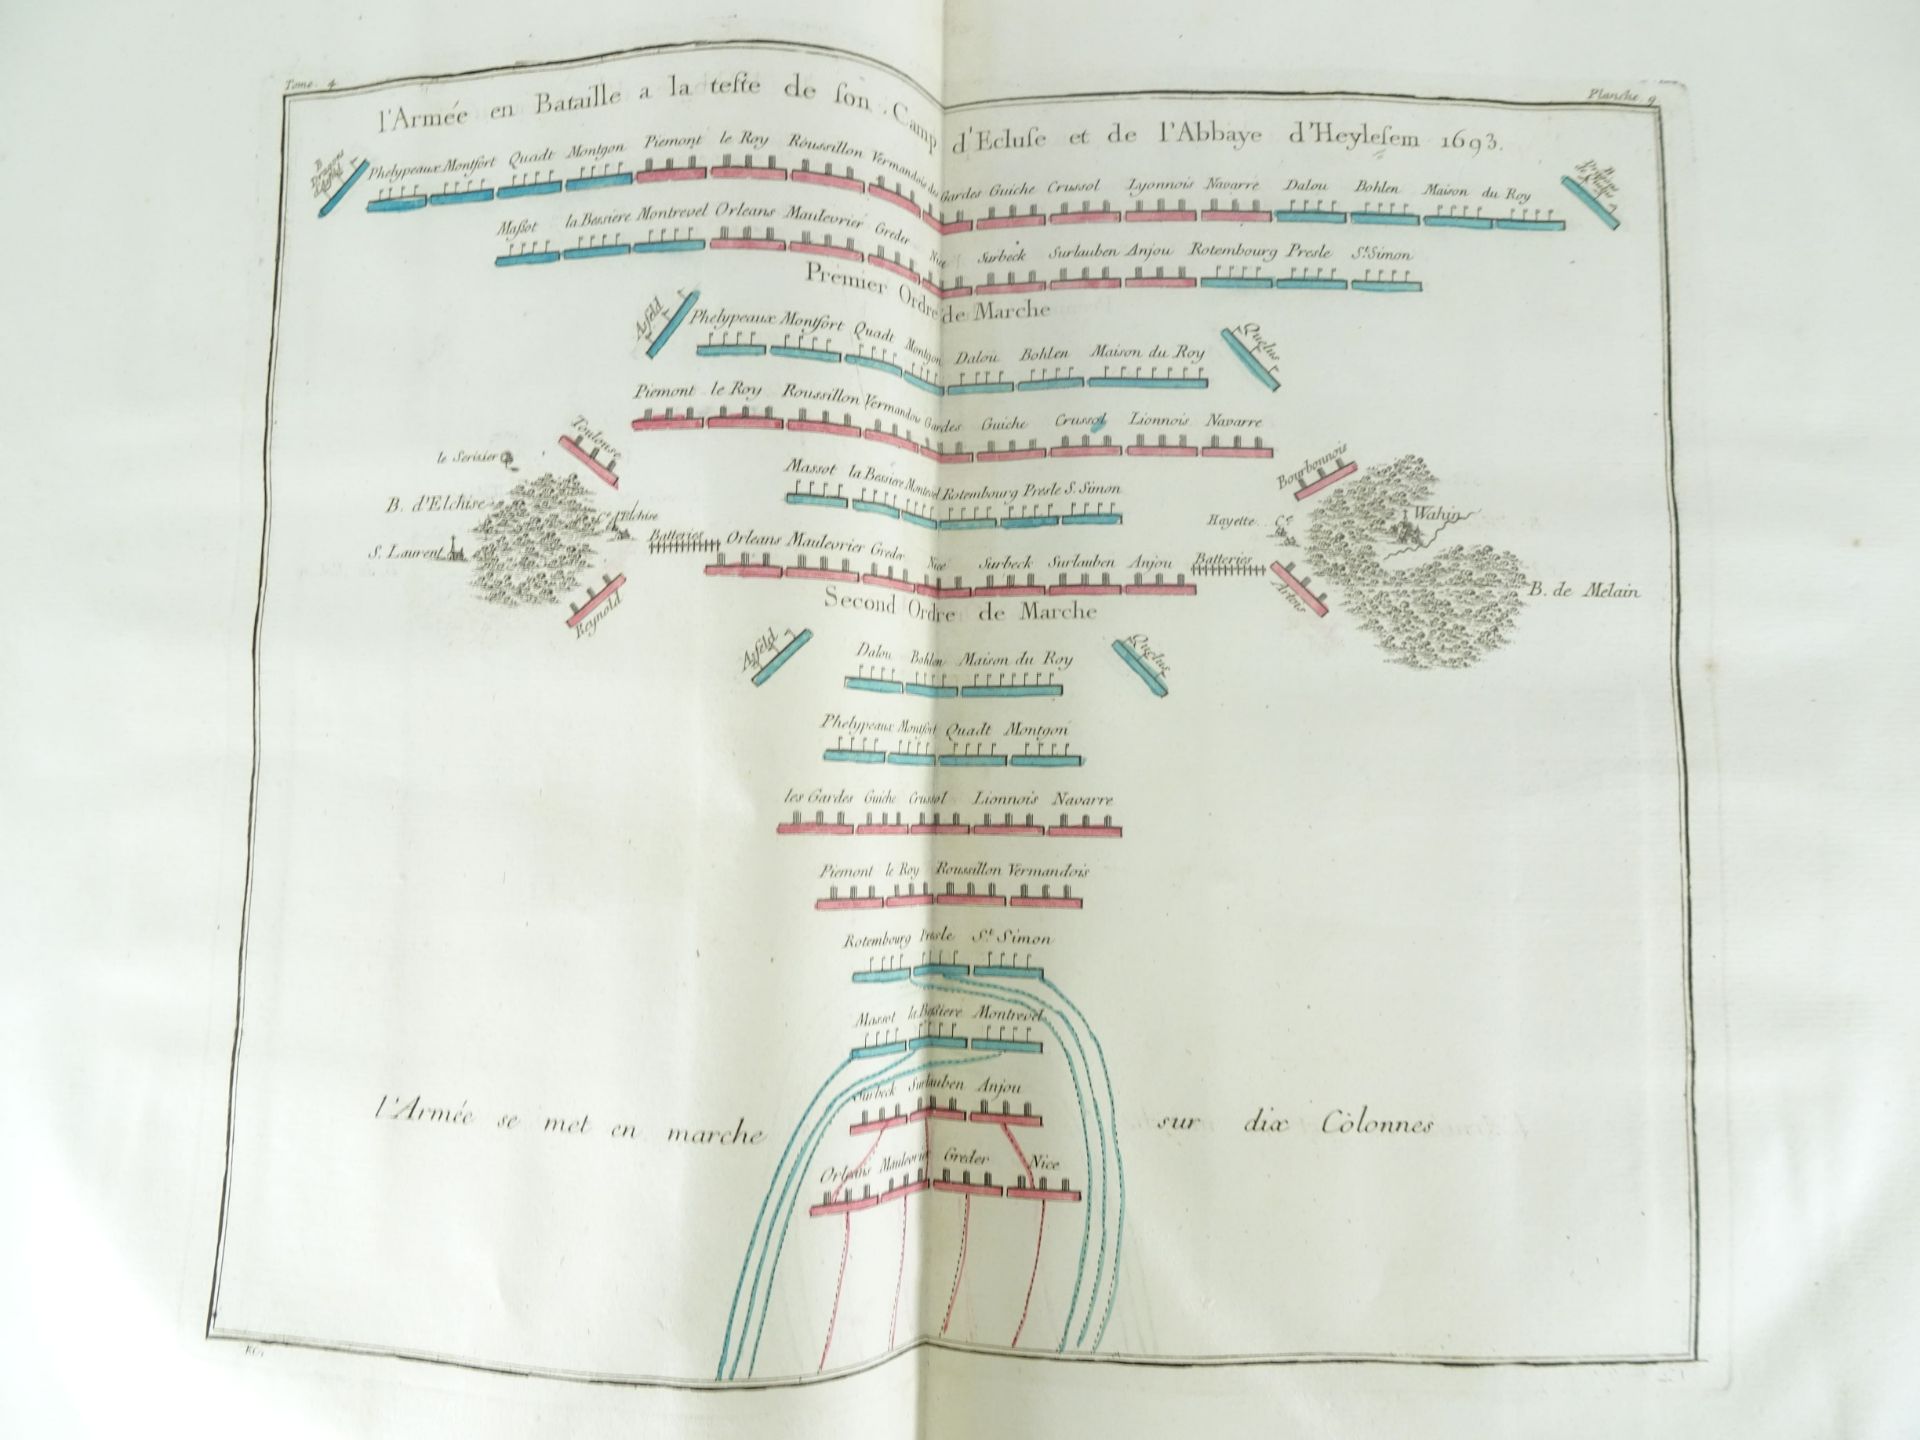 Tome. 4
Planche 9
l'Armée en Bataille a la teste de son Camp d'Ecluse et de l'Abbaye d'Heylesem 1693.
Phelypeaux Montfort Quadt Montgon Piemont le Roy Roussillon Vermandois les Gardes Guiche Crussol Lyonnois Navarre Dalou Bohlen Maison du Roy
Massot la Bessiere Montrevel Orleans Maulevrier Greder Nice Surbeck Surlauben Anjou Rotembourg Presle St. Simon
Premier Ordre de Marche
Asfeld Phelypeaux Montfort Quadt Montgon Dalou Bohlen Maison du Roy Quelus
Piemont le Roy Roussillon Vermandois Gardes Guiche Crussol Lionnois Navarre
Toulouse
Bourbonnois
le Serisier
Massot la Bessiere Montrevel Rotembourg Presle S. Simon
B. d'Elchise
Cᵉ d'Elchise
Hayette Cᵉ
Wahin
S. Laurent
Batteries Orleans Maulevrier Greder Nice Surbeck Surlauben Anjou Batteries
Reynold
Artois
B. de Melain
Second Ordre de Marche
Asfeld Dalou Bohlen Maison du Roy Quelus
Phelypeaux Montfort Quadt Montgon
les Gardes Guiche Crussol Lionnois Navarre
Piemont le Roy Roussillon Vermandois
Rotembourg Presle St. Simon
Massot la Bessiere Montrevel
Surbeck Surlauben Anjou
l'Armée se met en marche sur dix Colonnes
Orleans Maulevrier Greder Nice